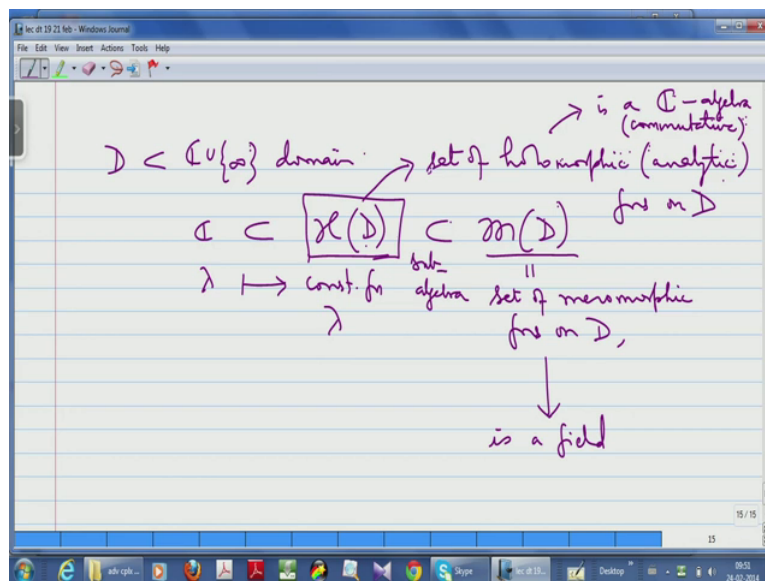 lec dt 19 21 feb - Windows Journal
File Edit View Insert Actions Tools Help
is a ℂ-algebra
(commutative)
D ⊂ ℂ∪{∞} domain. set of holomorphic (analytic)
fns on D
ℂ ⊂ H(D) ⊂ m(D)
λ ↦ const. fn
λ
sub-
algebra
||
set of meromorphic
fns on D,
is a field
15 / 15
15
adv cplx ...
Skype
lec dt 19...
Desktop
09:51
24-02-2014